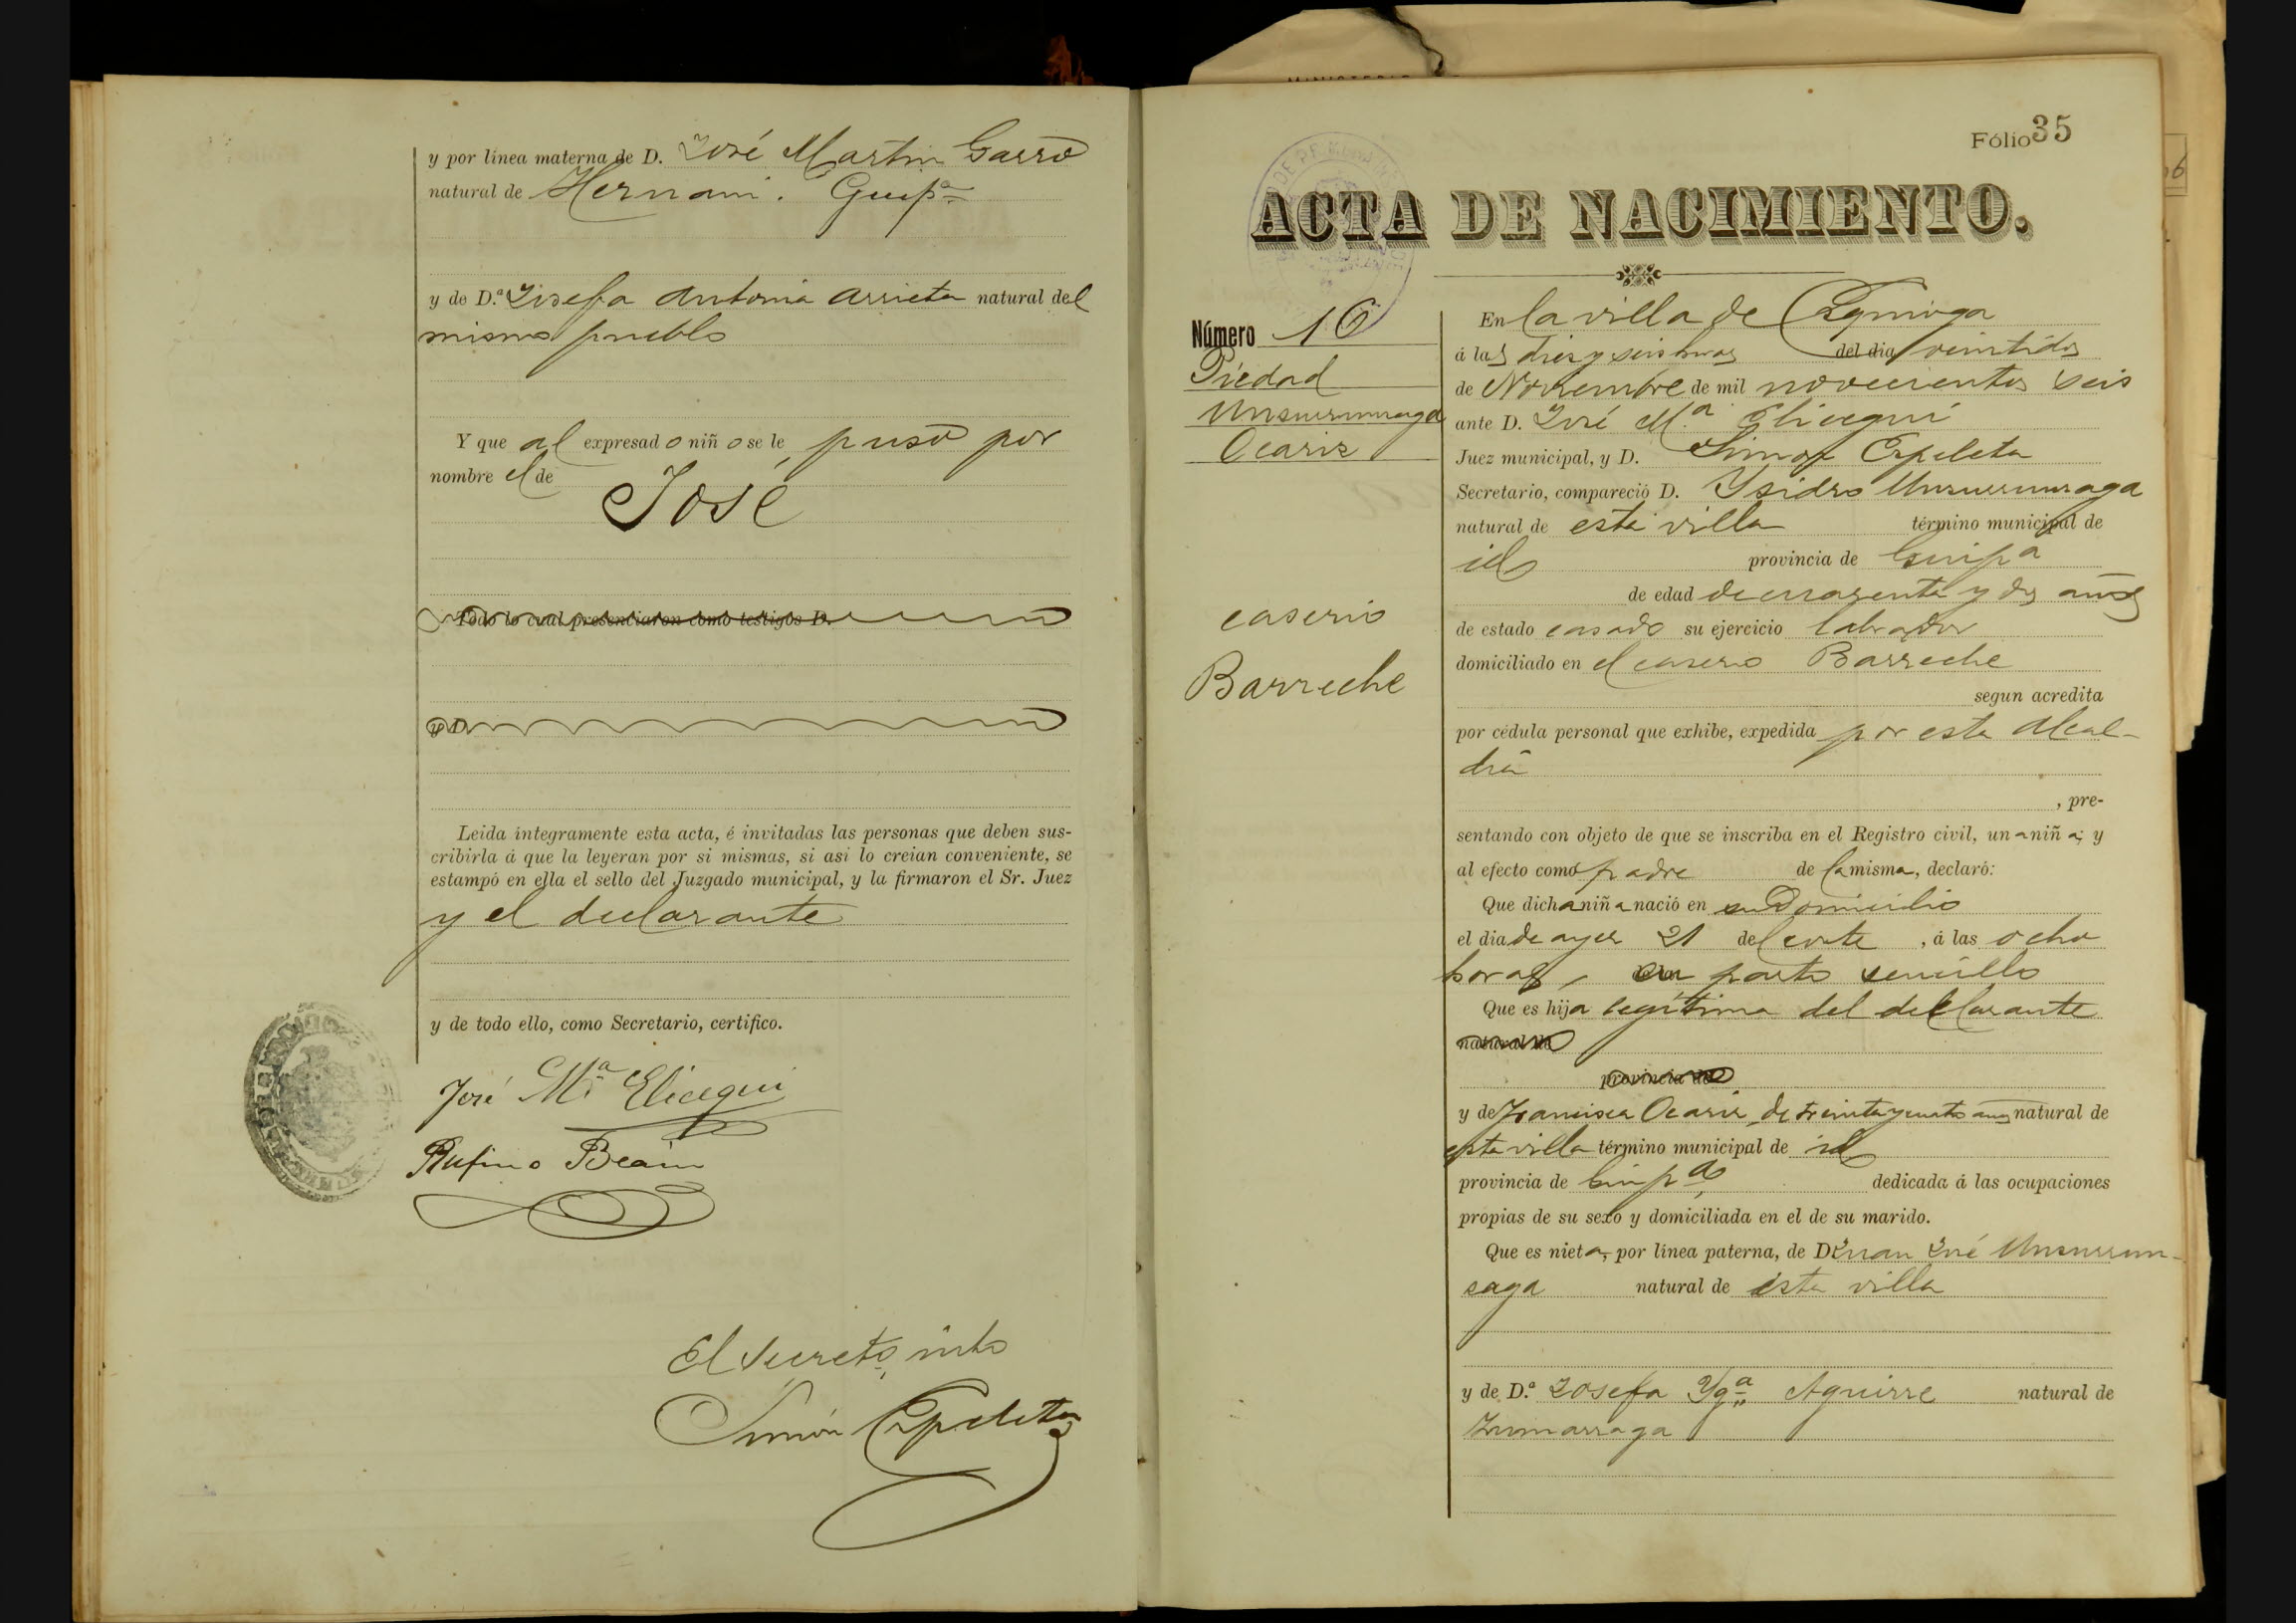 y por línea materna de D. José Martin Garro
natural de Hernani. Guipª
y de D.ª Josefa Antonia Arrieta natural del
mismo pueblo
Y que al expresado niño se le puso por
nombre el de José
Todo lo cual presenciaron como testigos D.
y D.
Leida integramente esta acta, é invitadas las personas que deben sus-
cribirla á que la leyeran por si mismas, si asi lo creian conveniente, se
estampó en ella el sello del Juzgado municipal, y la firmaron el Sr. Juez
y el declarante
y de todo ello, como Secretario, certifico.
José Mª Elicegui
Rufino Beain
El Secretº, into
Simón Ezpeleta
Fólio 35
ACTA DE NACIMIENTO.
Número 16
Piedad
Unsurrunzaga
Ocariz
caserio
Barreche
En la villa de Ezquioga
á las diez y seis horas del dia veintidos
de Noviembre de mil novecientos seis
ante D. José Mª Elicegui
Juez municipal, y D. Simon Ezpeleta
Secretario, compareció D. Ysidro Unsurrunzaga
natural de esta villa término municipal de
id provincia de Guipª
de edad de cuarenta y dos años
de estado casado su ejercicio labrador
domiciliado en el caserio Barreche
segun acredita
por cédula personal que exhibe, expedida por esta Alcal-
dia
, pre-
sentando con objeto de que se inscriba en el Registro civil, una niña; y
al efecto como padre de la misma, declaró:
Que dicha niña nació en su domicilio
el dia de ayer 21 del corte, á las ocho
horas, en parto sencillo
Que es hija legítima del declarante
natural de
provincia de
y de Francisca Ocariz, de treinta y cuatro años natural de
esta villa término municipal de id
provincia de Guipª, dedicada á las ocupaciones
propias de su sexo y domiciliada en el de su marido.
Que es nieta, por línea paterna, de D. Juan José Unsurrun-
zaga natural de esta villa
y de D.ª Josefa Ygª Aguirre natural de
Zumarraga